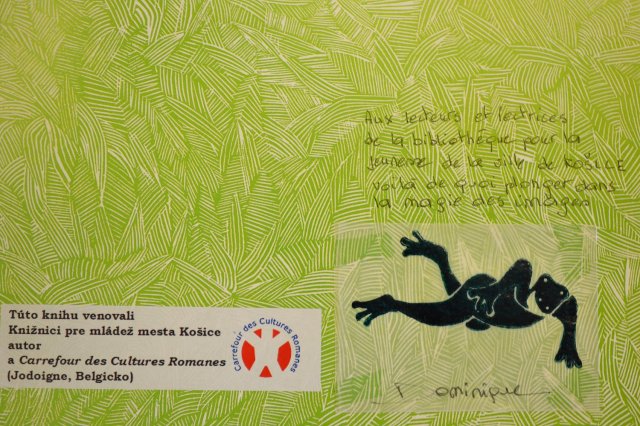 Aux lecteurs et lectrices
de la bibliothèque pour la
jeunesse de la ville de KOŠICE
voilà de quoi plonger dans
la magie des images
Dominique
Túto knihu venovali
Knižnici pre mládež mesta Košice
autor
a Carrefour des Cultures Romanes
(Jodoigne, Belgicko)
Carrefour des Cultures Romanes